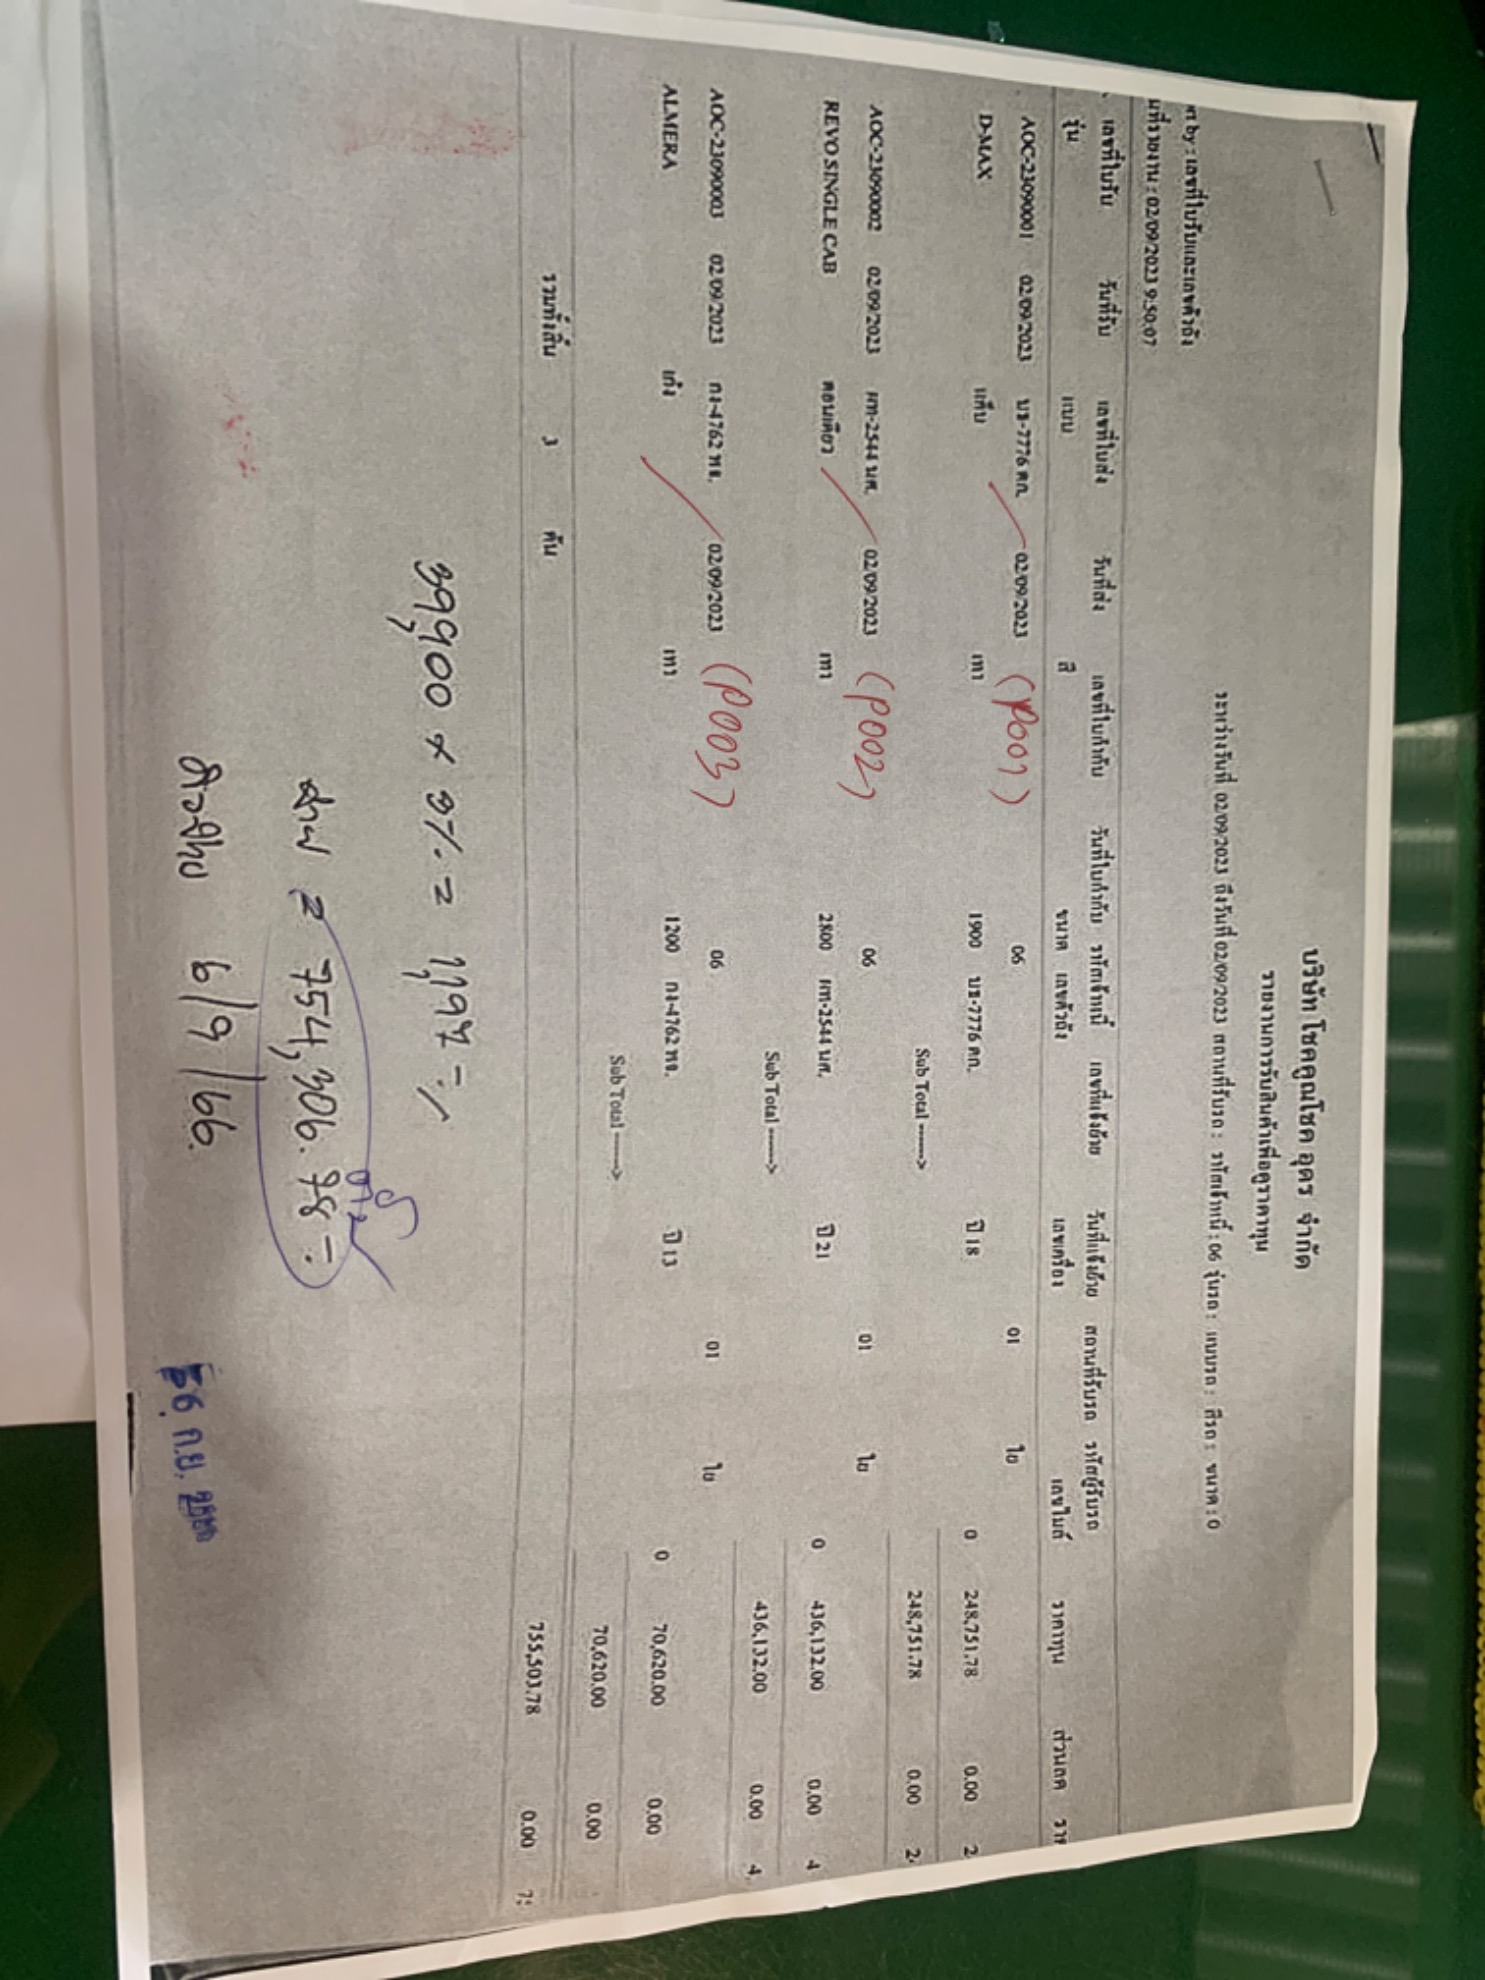 บริษัท โชคคูณโชค อุดร จำกัด
รายงานการรับสินค้าเพื่อดูราคาทุน
ระหว่างวันที่ 02/09/2023 ถึงวันที่ 02/09/2023 สถานที่รับรถ : รหัสเจ้าหนี้ : 06 รุ่นรถ : แบบรถ : สีรถ : ขนาด : 0
by : เลขที่ใบรับและเลขตัวถัง
02/09/2023 9:50:07
เลขที่ใบรับ วันที่รับ เลขที่ใบส่ง วันที่ส่ง เลขที่ใบกำกับ วันที่ใบกำกับ รหัสเจ้าหนี้ เลขที่แจ้งย้าย วันที่แจ้งย้าย สถานที่รับรถ รหัสผู้รับรถ
รุ่น แบบ สี ขนาด เลขตัวถัง เลขเครื่อง เลขไมล์ ราคาทุน ส่วนลด
AOC-23090001 02/09/2023 บร-7776 ตก. 02/09/2023 (P001) 06 01 ใย
D-MAX แค็บ เทา 1900 บร-7776 ตก. ปี 18 0 248,751.78 0.00
Sub Total ------> 248,751.78 0.00
AOC-23090002 02/09/2023 ผท-2544 นศ. 02/09/2023 (P002) 06 01 ใย
REVO SINGLE CAB ตอนเดียว เทา 2800 ผท-2544 นศ. ปี 21 0 436,132.00 0.00
Sub Total ------> 436,132.00 0.00
AOC-23090003 02/09/2023 กง-4762 พจ. 02/09/2023 (P003) 06 01 ใย
ALMERA เก๋ง เทา 1200 กง-4762 พจ. ปี 13 0 70,620.00 0.00
Sub Total ------> 70,620.00 0.00
รวมทั้งสิ้น 3 คัน 755,503.78 0.00
39,900 x 3% = 1,197 -
= 754,306.78 -
6/9/66.
ก.ย.